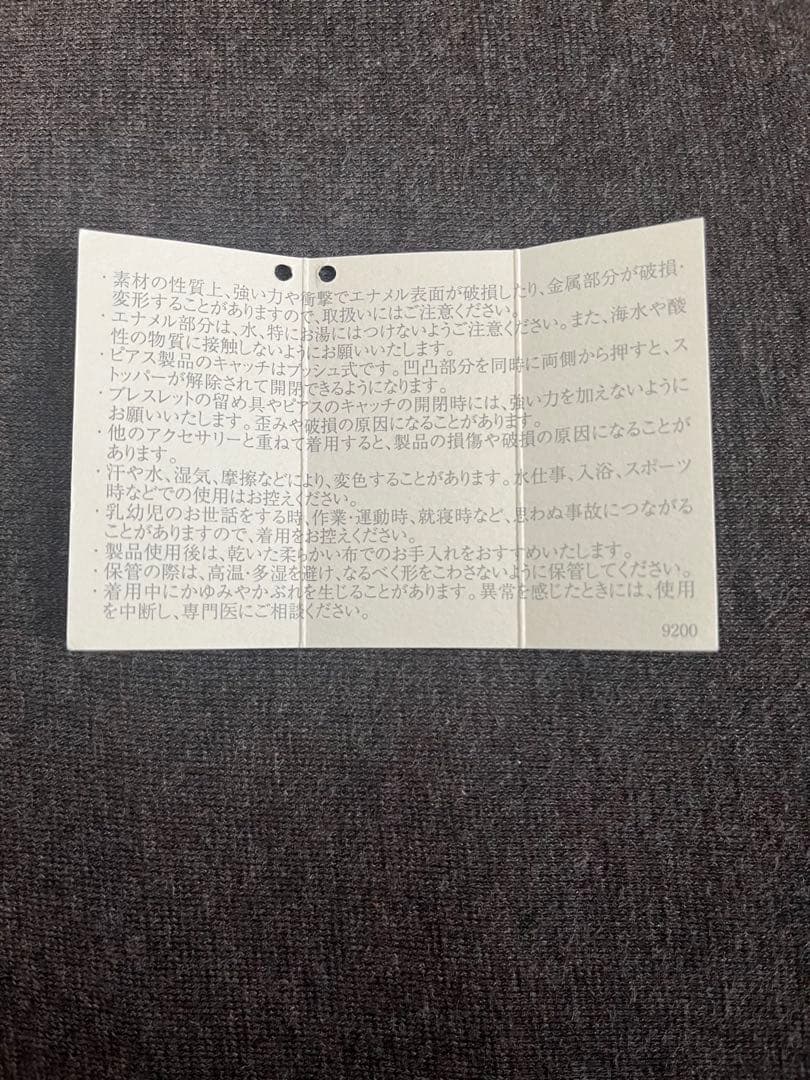 ・素材の性質上、強い力や衝撃でエナメル表面が破損したり、金属部分が破損・
変形することがありますので、取扱いにはご注意ください。
・エナメル部分は、水、特にお湯にはつけないようご注意ください。また、海水や酸
性の物質に接触しないようにお願いいたします。
・ピアス製品のキャッチはプッシュ式です。凹凸部分を同時に両側から押すと、ス
トッパーが解除されて開閉できるようになります。
・ブレスレットの留め具やピアスのキャッチの開閉時には、強い力を加えないように
お願いいたします。歪みや破損の原因になることがあります。
・他のアクセサリーと重ねて着用すると、製品の損傷や破損の原因になることが
あります。
・汗や水、湿気、摩擦などにより、変色することがあります。水仕事、入浴、スポーツ
時などでの使用はお控えください。
・乳幼児のお世話をする時、作業・運動時、就寝時など、思わぬ事故につながる
ことがありますので、着用をお控えください。
・製品使用後は、乾いた柔らかい布でのお手入れをおすすめいたします。
・保管の際は、高温・多湿を避け、なるべく形をこわさないように保管してください。
・着用中にかゆみやかぶれを生じることがあります。異常を感じたときには、使用
を中断し、専門医にご相談ください。
9200